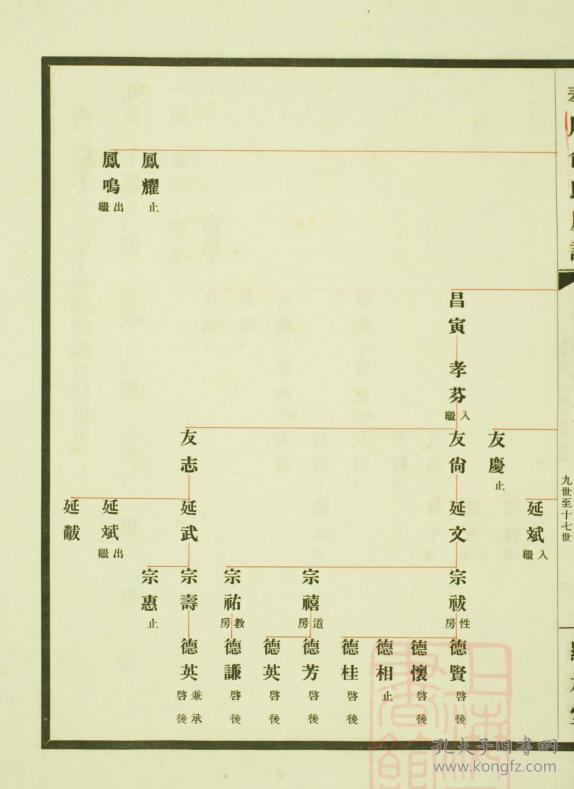 九世至十七世
鳳耀 止
鳳鳴 出繼
昌寅
孝芬 入繼
友慶 止
友尙
友志
延斌 入繼
延文
延武
延斌 出繼
延黻
宗祓 性房
宗禧 道房
宗祐 教房
宗壽
宗惠 止
德賢 啓後
德懷 啓後
德相 止
德桂 啓後
德芳 啓後
德英 啓後
德謙 啓後
德英 兼承 啓後
孔夫子旧书网
www.kongfz.com